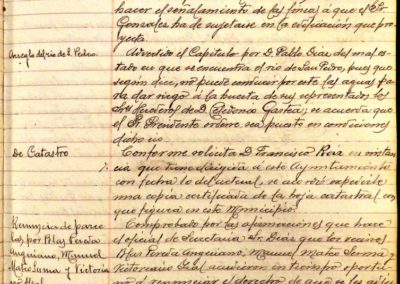 hacer el señalamiento de las líneas á que el Sr.
Gonzales ha de sujetarse en la edificación que pro-
yecta.
Arreglo del río de S. Pedro
Atendido el Capítulo por D. Pablo Díaz del mal es-
tado en que se encuentra el río de San Pedro, pues que
según dice, no puede conducir por este las aguas pa-
ra dar riego á la huerta de sus representados los
Sres. Herederos de D. Celdonio Gastea, se acuerda que
el Sr. Presidente ordene sea puesto en condiciones
dicho río.
De Catastro
Conforme solicita D. Francisco Roiz en instan-
cia que tiene dirigida á este Ayuntamiento
con fecha 10 del actual, se acordó expedirle
una copia certificada de la hoja catastral con
que figura en este Municipio.
Renuncia de parce-
las, por Blas Pereda
Anguiano, Manuel
Mateo Serma y Victoria-
no Gral
Comprobado por las afirmaciones que hace
el oficial de Secretaría Sr. Díaz que los vecinos
Blas Pereda Anguiano, Manuel Mateo Serma y
Victoriano Gral acudieron en tiempo oportu-
no á renunciar el derecho de que se les